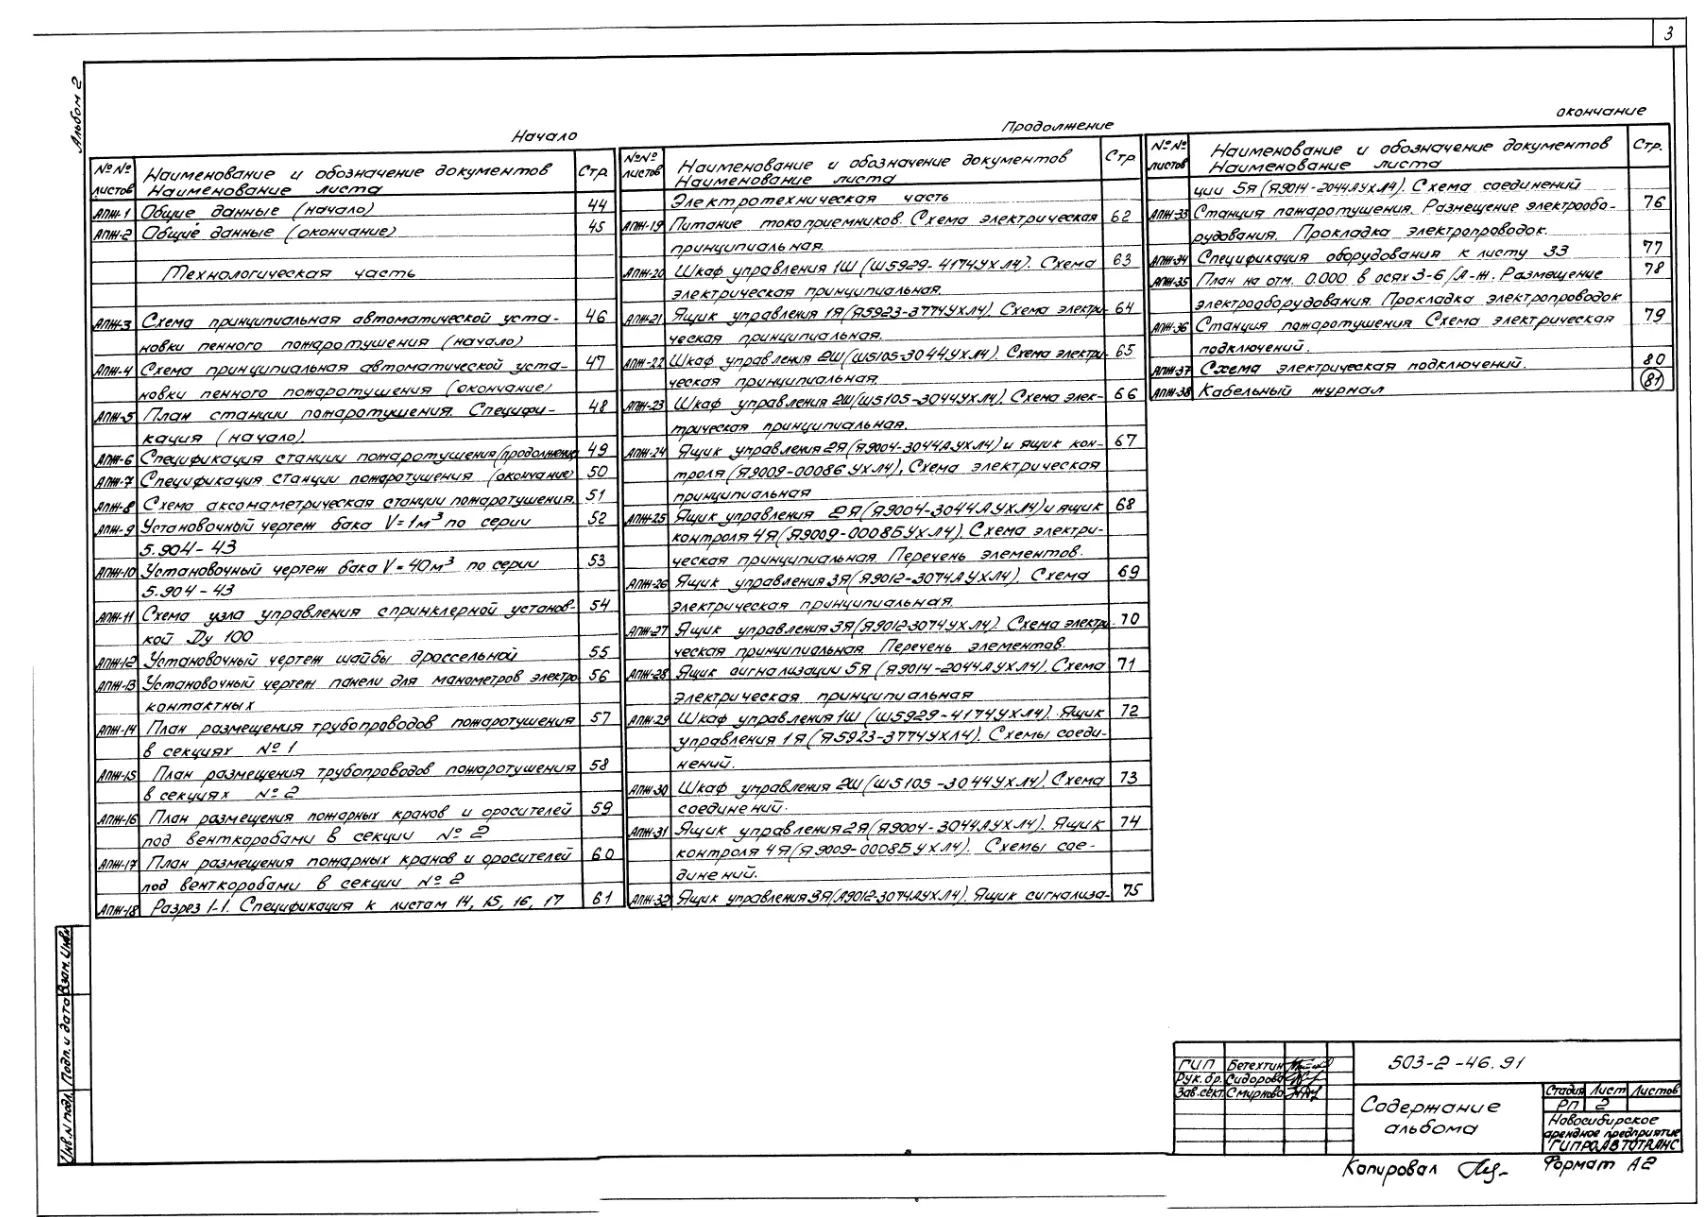 3
Альбом 2
Начало
№№ листов
Наименование и обозначение документов
Наименование листа
Стр.
АПЖ-1 Общие данные (начало) 44
АПЖ-2 Общие данные (окончание) 45
Технологическая часть
АПЖ-3 Схема принципиальная автоматической уста- 46
новки пенного пожаротушения (начало)
АПЖ-4 Схема принципиальная автоматической уста- 47
новки пенного пожаротушения (окончание)
АПЖ-5 План станции пожаротушения. Специфи- 48
кация (начало)
АПЖ-6 Спецификация станции пожаротушения (продолжение) 49
АПЖ-7 Спецификация станции пожаротушения (окончание) 50
АПЖ-8 Схема аксонаметрическая станции пожаротушения. 51
АПЖ-9 Установочный чертеж бака V=1м³ по серии 52
5.904-43
АПЖ-10 Установочный чертеж бака V=40м³ по серии 53
5.904-43
АПЖ-11 Схема узла управления спринклерной установ- 54
кой Ду 100
АПЖ-12 Установочный чертеж шайбы дроссельной 55
АПЖ-13 Установочный чертеж панели для манометров электро 56
контактных
АПЖ-14 План размещения трубопроводов пожаротушения 57
в секциях №1
АПЖ-15 План размещения трубопроводов пожаротушения 58
в секциях №2
АПЖ-16 План размещения пожарных кранов и оросителей 59
под венткоробами в секции №2
АПЖ-17 План размещения пожарных кранов и оросителей 60
под венткоробами в секции №2
АПЖ-18 Разрез 1-1. Спецификация к листам 14, 15, 16, 17 61
Продолжение
№№ листов
Наименование и обозначение документов
Наименование листа
Стр
Электротехническая часть
АПЖ-19 Питание токоприемников. Схема электрическая 62
принципиальная.
АПЖ-20 Шкаф управления 1Ш (Ш5929-4174УХЛ4). Схема 63
электрическая принципиальная.
АПЖ-21 Ящик управления 1Я (Я5923-3774УХЛ4). Схема электри- 64
ческая принципиальная.
АПЖ-22 Шкаф управления 2Ш (Ш5105-3044УХЛ4). Схема электри- 65
ческая принципиальная.
АПЖ-23 Шкаф управления 2Ш (Ш5105-3044УХЛ4). Схема элек- 66
трическая принципиальная.
АПЖ-24 Ящик управления 2Я (Я9004-3044А УХЛ4) и ящик кон- 67
троля (Я9009-00086 УХЛ4). Схема электрическая
принципиальная
АПЖ-25 Ящик управления 2Я (Я9004-3044АУХЛ4) и ящик 68
контроля 4Я (Я9009-0008БУХЛ4). Схема электри-
ческая принципиальная. Перечень элементов.
АПЖ-26 Ящик управления 3Я (Я9012-3074АУХЛ4). Схема 69
электрическая принципиальная.
АПЖ-27 Ящик управления 3Я (Я9012-3074УХЛ4). Схема электри- 70
ческая принципиальная. Перечень элементов.
АПЖ-28 Ящик сигнализации 5Я (Я9014-2044АУХЛ4). Схема 71
электрическая принципиальная
АПЖ-29 Шкаф управления 1Ш (Ш5929-4174УХЛ4). Ящик 72
управления 1Я (Я5923-3774УХЛ4). Схемы соеди-
нений.
АПЖ-30 Шкаф управления 2Ш (Ш5105-3044УХЛ4). Схема 73
соединений.
АПЖ-31 Ящик управления 2Я (Я9004-3044АУХЛ4). Ящик 74
контроля 4Я (Я9009-0008БУХЛ4). Схемы сое-
динений.
АПЖ-32 Ящик управления 3Я (Я9012-3074АУХЛ4). Ящик сигнализа- 75
окончание
№№ листов
Наименование и обозначение документов
Наименование листа
Стр.
ции 5Я (Я9014-2044АУХЛ4). Схема соединений
АПЖ-33 Станция пажаротушения. Размещение электрообо- 76
рудования. Прокладка электропроводок.
АПЖ-34 Спецификация оборудования к листу 33 77
АПЖ-35 План на отм. 0.000 в осях 3-6/А-Ж. Размещение 78
электрооборудования. Прокладка электропроводок
АПЖ-36 Станция пожаротушения Схема электрическая 79
подключений.
АПЖ-37 Схема электрическая подключений. 80
АПЖ-38 Кабельный журнал 81
Инв.N подл. Подп. и дата Взам. инв.
ГИП Бетехтин
Рук. бр. Сидорова
Зав.сект. Смирнова
503-2-46.91
Содержание
альбома
Стадия Лист Листов
РП 2
Новосибирское
арендное предприятие
ГИПРОАВТОТРАНС
Копировал
Формат А2